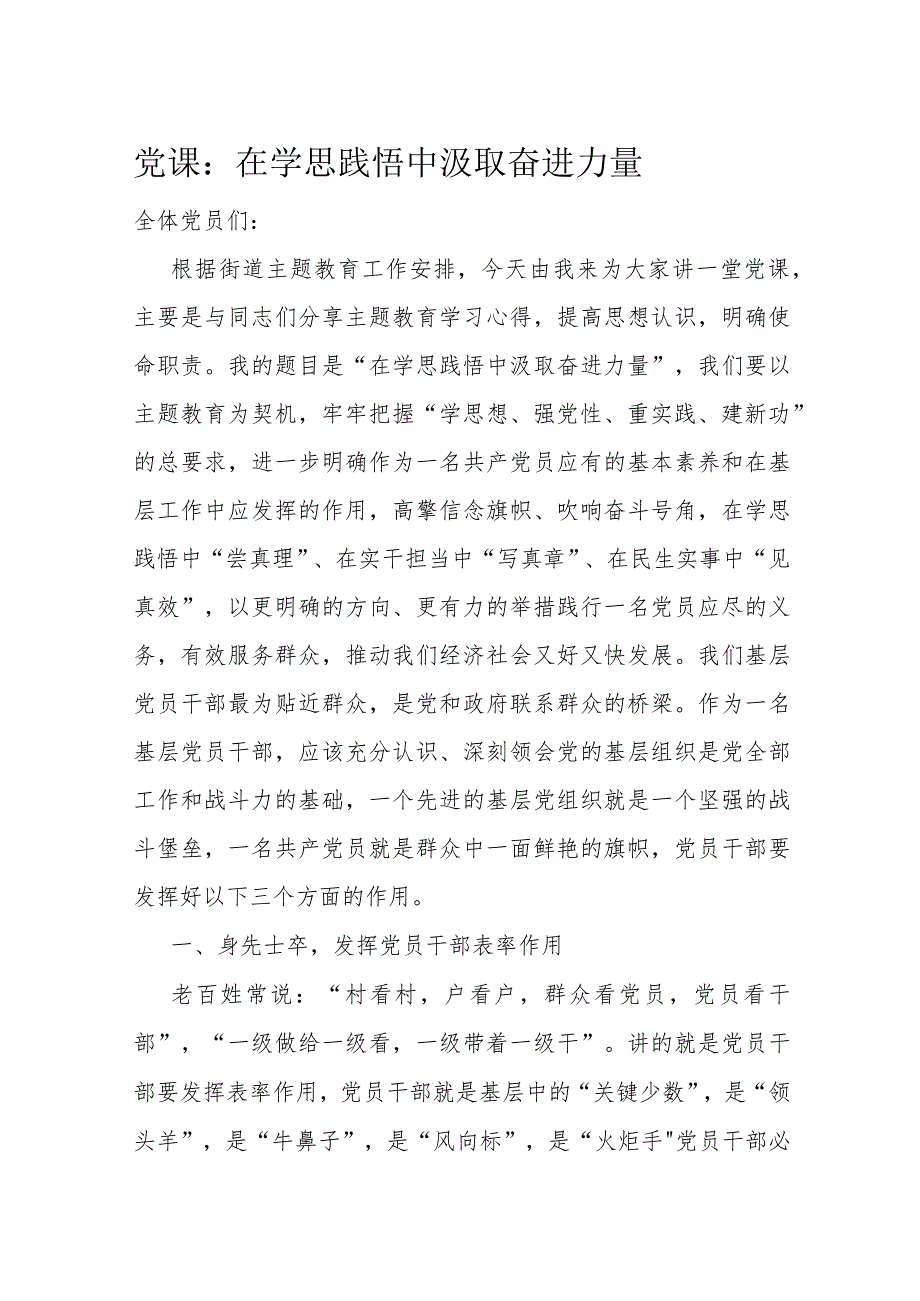 党课：在学思践悟中汲取奋进力量
全体党员们：
根据街道主题教育工作安排，今天由我来为大家讲一堂党课，
主要是与同志们分享主题教育学习心得，提高思想认识，明确使
命职责。我的题目是“在学思践悟中汲取奋进力量”，我们要以
主题教育为契机，牢牢把握“学思想、强党性、重实践、建新功”
的总要求，进一步明确作为一名共产党员应有的基本素养和在基
层工作中应发挥的作用，高擎信念旗帜、吹响奋斗号角，在学思
践悟中“尝真理”、在实干担当中“写真章”、在民生实事中“见
真效”，以更明确的方向、更有力的举措践行一名党员应尽的义
务，有效服务群众，推动我们经济社会又好又快发展。我们基层
党员干部最为贴近群众，是党和政府联系群众的桥梁。作为一名
基层党员干部，应该充分认识、深刻领会党的基层组织是党全部
工作和战斗力的基础，一个先进的基层党组织就是一个坚强的战
斗堡垒，一名共产党员就是群众中一面鲜艳的旗帜，党员干部要
发挥好以下三个方面的作用。
一、身先士卒，发挥党员干部表率作用
老百姓常说：“村看村，户看户，群众看党员，党员看干
部”，“一级做给一级看，一级带着一级干”。讲的就是党员干
部要发挥表率作用，党员干部就是基层中的“关键少数”，是“领
头羊”，是“牛鼻子”，是“风向标”，是“火炬手"党员干部必